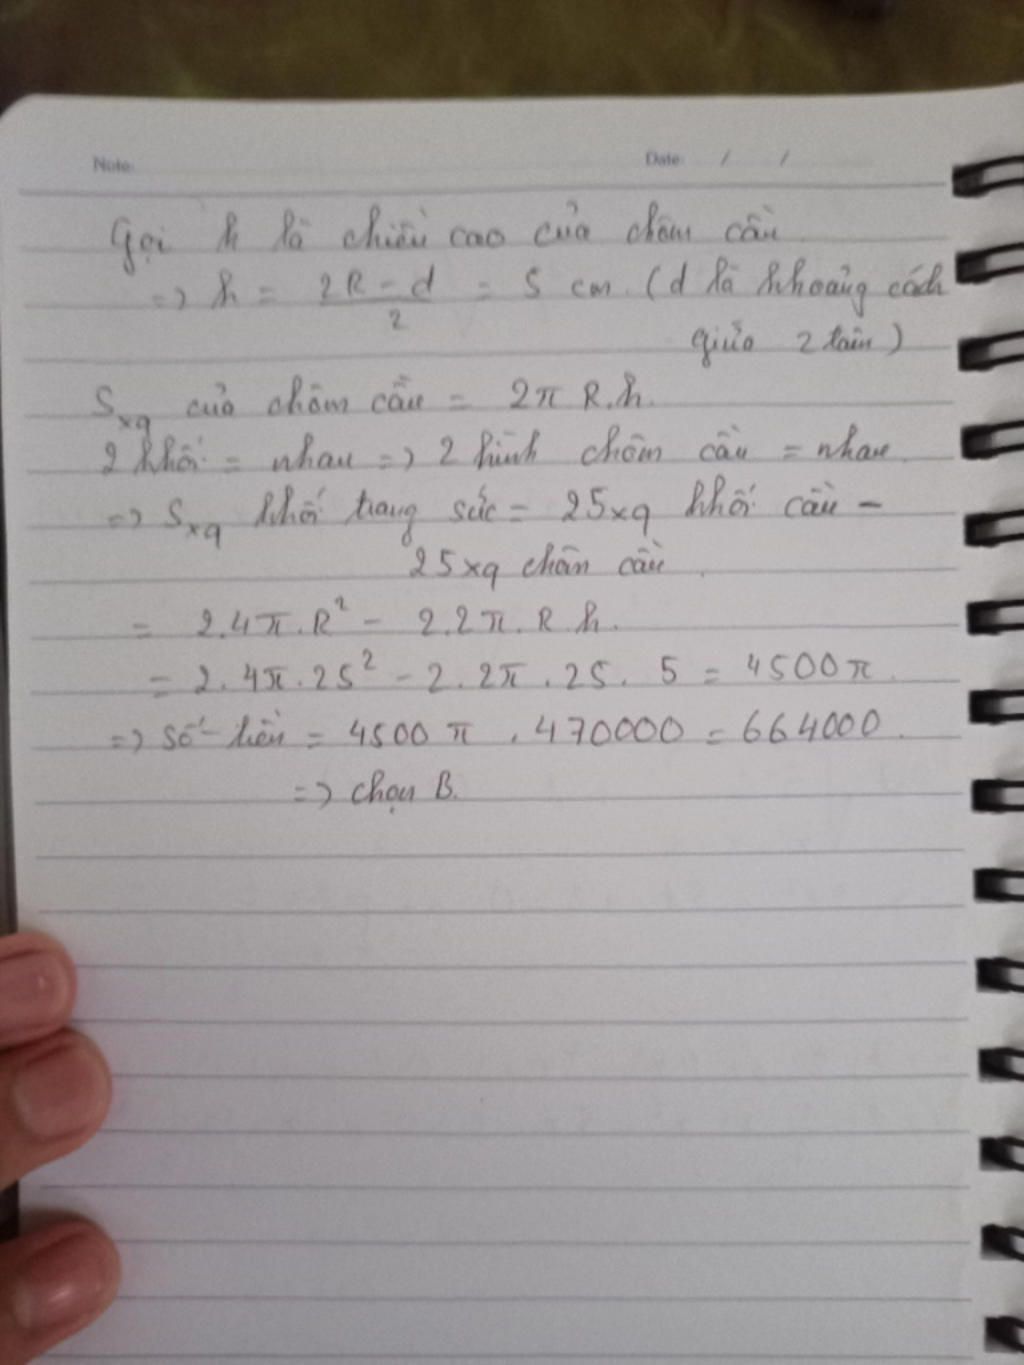 Note: Date: / /
Gọi h là chiều cao của chỏm cầu.
=> h = (2R - d)/2 = 5 cm. (d là khoảng cách
giữa 2 tâm)
Sxq của chỏm cầu = 2π R.h.
2 khối = nhau => 2 hình chỏm cầu = nhau.
=> Sxq khối trang sức = 2Sxq khối cầu -
2Sxq chỏm cầu.
= 2.4π.R² - 2.2π.R h.
= 2.4π.25² - 2.2π.25.5 = 4500π.
=> số tiền = 4500π . 470000 = 664000.
=> chọn B.